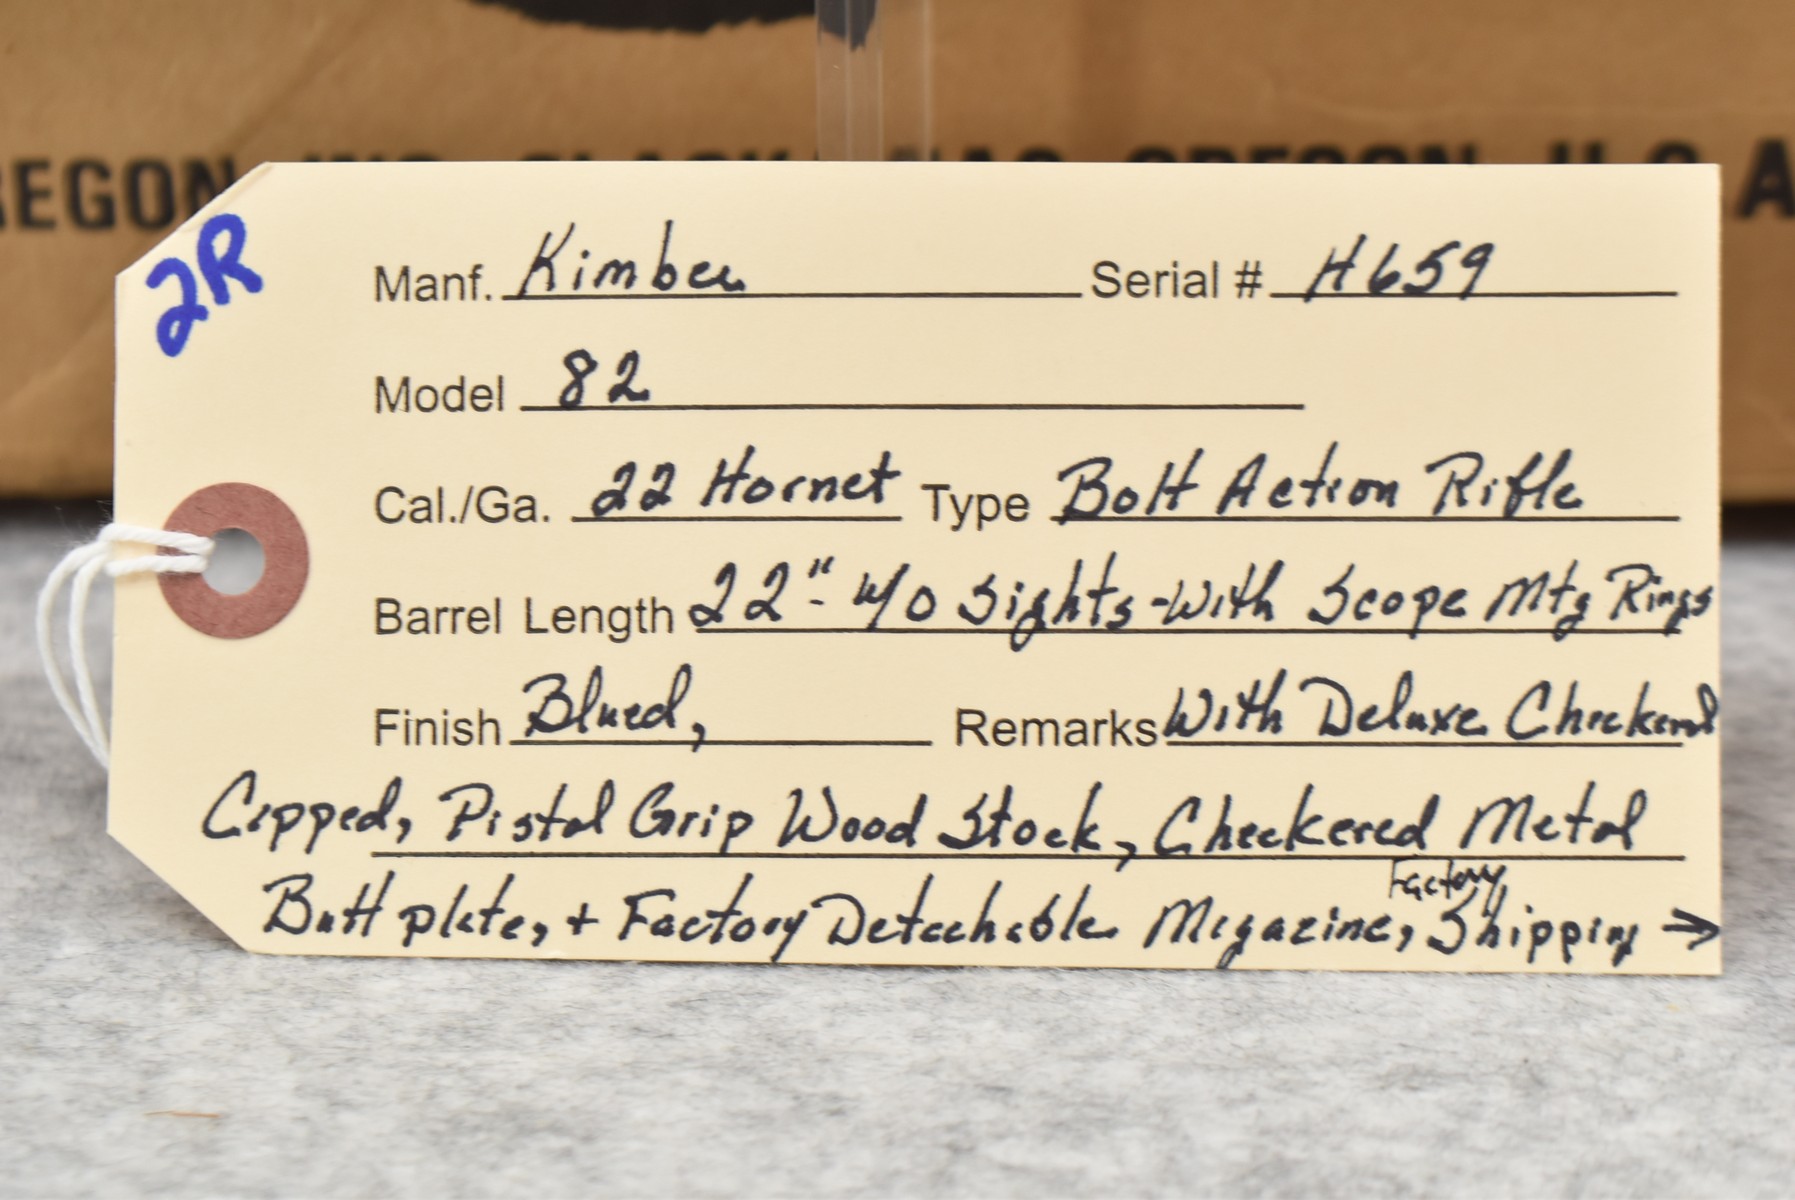 REGON, INC. CLACKAMAS, OREGON U.S.A
2R
Manf. Kimber Serial # H659
Model 82
Cal./Ga. 22 Hornet Type Bolt Action Rifle
Barrel Length 22"- w/o Sights-With Scope Mtg Rings
Finish Blued, Remarks With Deluxe Checkered
Capped, Pistol Grip Wood Stock, Checkered Metal
Factory
Butt plate, + Factory Detachable Magazine, Shipping →